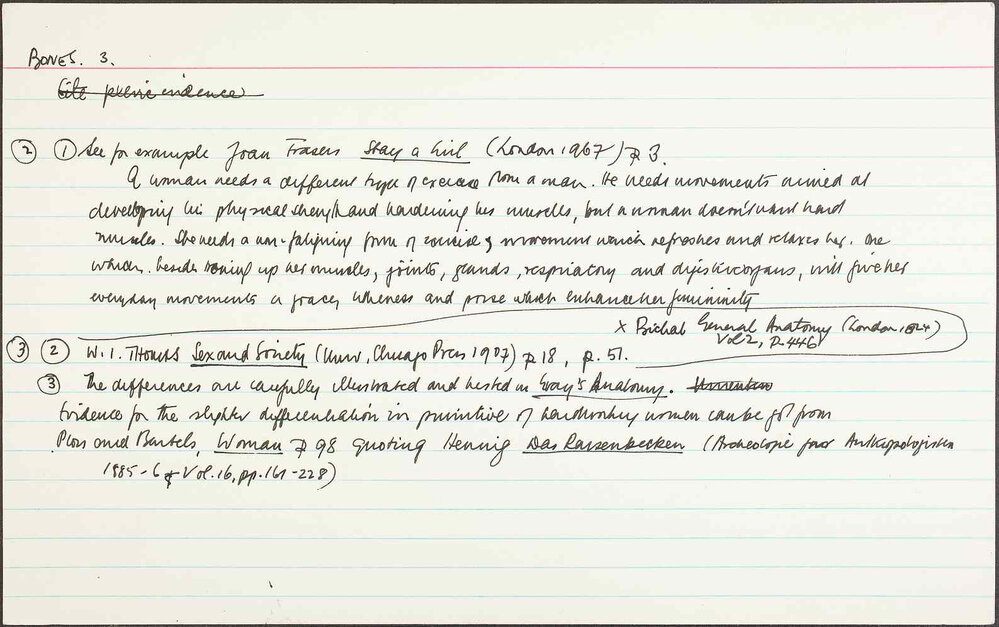 BONES. 3.
Cite pelvic evidence
② ① See for example Joan Frasers Stay a Girl (London 1967) p 3.
A woman needs a different type of exercise from a man. He needs movements aimed at
developing his physical strength and hardening his muscles, but a woman doesn't want hard
muscles. She needs a non-fatiguing form of concise movement which refreshes and relaxes her. One
which, besides toning up her muscles, joints, glands, respiratory and digestive organs, will give her
everyday movements a grace, litheness and poise which enhance her femininity
x Bichat General Anatomy (London 1824)
Vol 2, p. 446
③ ② W. I. Thomas Sex and Society (Univ, Chicago Press 1907) p 18, p. 51.
③ The differences are carefully illustrated and listed in Gray's Anatomy.
Evidence for the slighter differentiation in primitive of hardworking women can be got from
Ploss and Bartels, Woman p 98 quoting Hennig Das Rassenbecken (Archeologie für Anthropologischen
1885-6 Vol. 16, pp. 161-228)